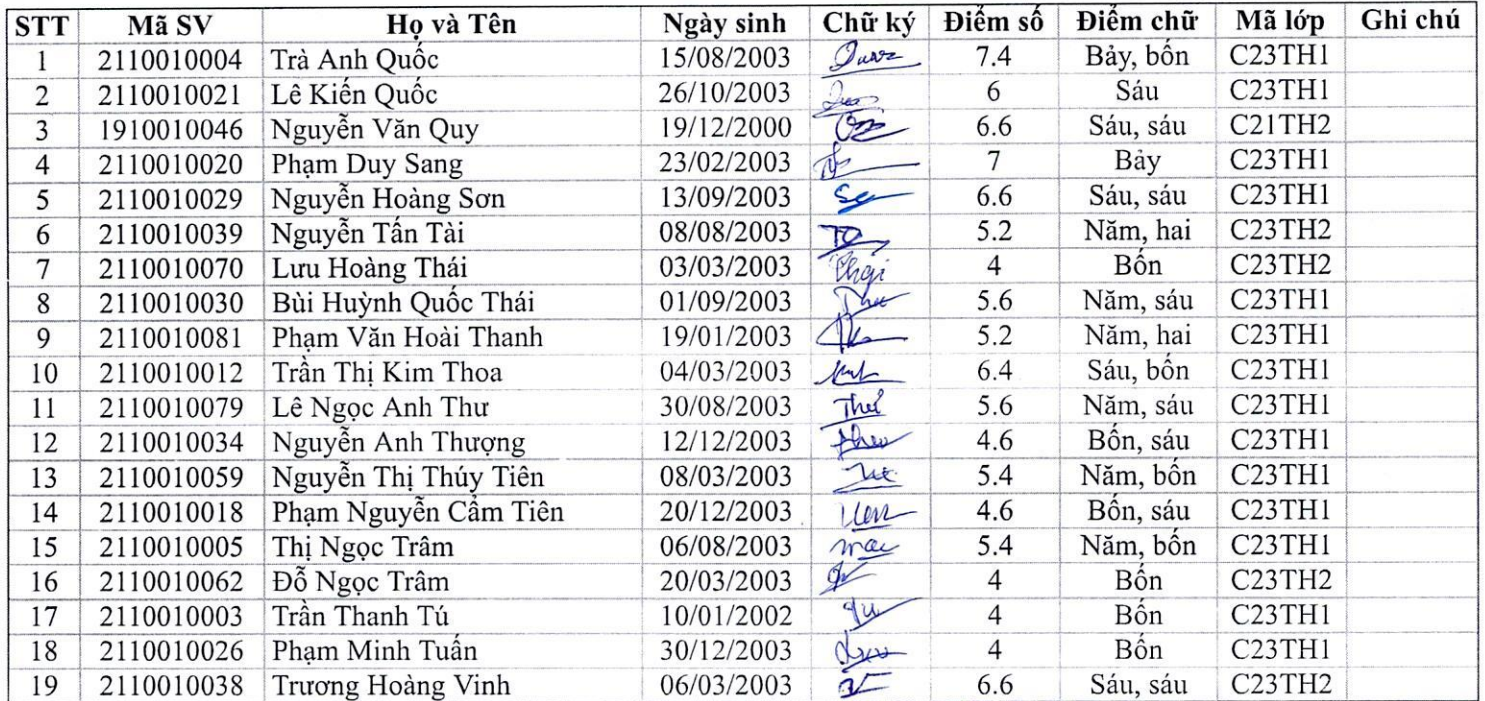 STT Mã SV Họ và Tên Ngày sinh Chữ ký Điểm số Điểm chữ Mã lớp Ghi chú
1 2110010004 Trà Anh Quốc 15/08/2003 7.4 Bảy, bốn C23TH1
2 2110010021 Lê Kiến Quốc 26/10/2003 6 Sáu C23TH1
3 1910010046 Nguyễn Văn Quy 19/12/2000 6.6 Sáu, sáu C21TH2
4 2110010020 Phạm Duy Sang 23/02/2003 7 Bảy C23TH1
5 2110010029 Nguyễn Hoàng Sơn 13/09/2003 6.6 Sáu, sáu C23TH1
6 2110010039 Nguyễn Tấn Tài 08/08/2003 5.2 Năm, hai C23TH2
7 2110010070 Lưu Hoàng Thái 03/03/2003 4 Bốn C23TH2
8 2110010030 Bùi Huỳnh Quốc Thái 01/09/2003 5.6 Năm, sáu C23TH1
9 2110010081 Phạm Văn Hoài Thanh 19/01/2003 5.2 Năm, hai C23TH1
10 2110010012 Trần Thị Kim Thoa 04/03/2003 6.4 Sáu, bốn C23TH1
11 2110010079 Lê Ngọc Anh Thư 30/08/2003 Thư 5.6 Năm, sáu C23TH1
12 2110010034 Nguyễn Anh Thượng 12/12/2003 4.6 Bốn, sáu C23TH1
13 2110010059 Nguyễn Thị Thúy Tiên 08/03/2003 5.4 Năm, bốn C23TH1
14 2110010018 Phạm Nguyễn Cẩm Tiên 20/12/2003 4.6 Bốn, sáu C23TH1
15 2110010005 Thị Ngọc Trâm 06/08/2003 5.4 Năm, bốn C23TH1
16 2110010062 Đỗ Ngọc Trâm 20/03/2003 4 Bốn C23TH2
17 2110010003 Trần Thanh Tú 10/01/2002 4 Bốn C23TH1
18 2110010026 Phạm Minh Tuấn 30/12/2003 4 Bốn C23TH1
19 2110010038 Trương Hoàng Vinh 06/03/2003 6.6 Sáu, sáu C23TH2